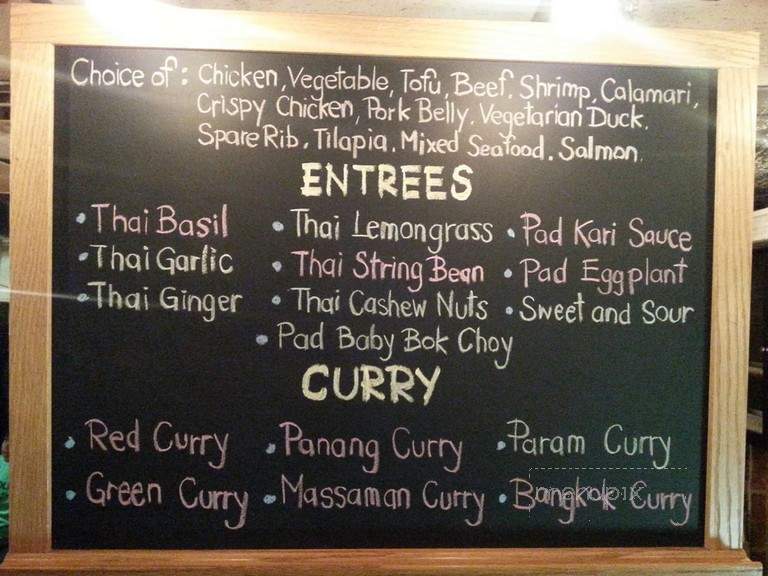 Choice of: Chicken, Vegetable, Tofu, Beef, Shrimp, Calamari,
Crispy Chicken, Pork Belly, Vegetarian Duck,
Spare Rib, Tilapia, Mixed Seafood, Salmon.
ENTREES
• Thai Basil • Thai Lemongrass • Pad Kari Sauce
• Thai Garlic • Thai String Bean • Pad Eggplant
• Thai Ginger • Thai Cashew Nuts • Sweet and Sour
• Pad Baby Bok Choy
CURRY
• Red Curry • Panang Curry • Param Curry
• Green Curry • Massaman Curry • Bangkok Curry